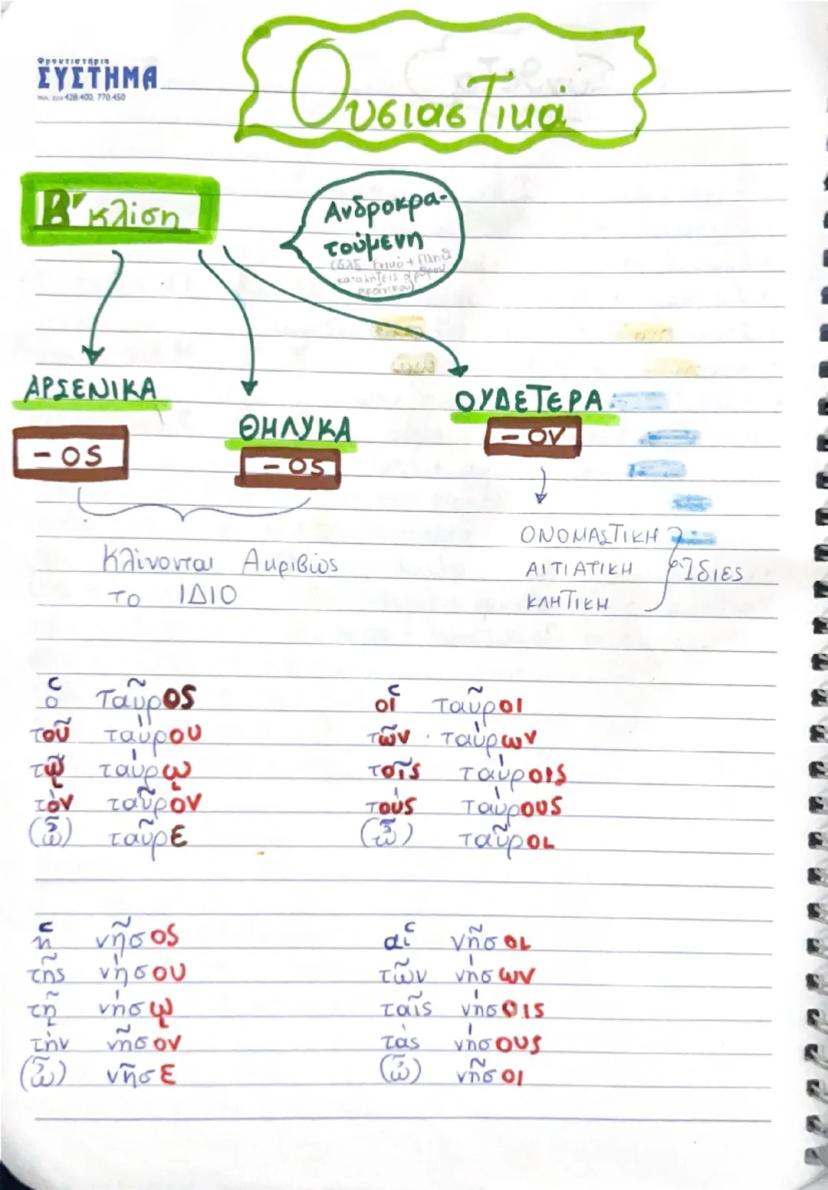 Φροντιστήρια
ΣΥΣΤΗΜΑ
428.400, 770.450
Ουσιαστικά
Β' κλίση
Ανδροκρα-
τούμενη
ΑΡΣΕΝΙΚΑ
ΘΗΛΥΚΑ
ΟΥΔΕΤΕΡΑ
-ος
-ος
-ον
Κλίνονται Ακριβώς
το ΙΔΙΟ
ΟΝΟΜΑΣΤΙΚΗ
ΑΙΤΙΑΤΙΚΗ
ΚΛΗΤΙΚΗ
Ίδιες
ὁ ταῦρος οἱ ταῦροι
τοῦ ταύρου τῶν ταύρων
τῷ ταύρῳ τοῖς ταύροις
τὸν ταῦρον τούς ταύρους
(ὦ) ταῦρε (ὦ) ταῦροι
ἡ νῆσος αἱ νῆσοι
τῆς νήσου τῶν νήσων
τῇ νήσῳ ταῖς νήσοις
τήν νῆσον τάς νήσους
(ὦ) νῆσε (ὦ) νῆσοι